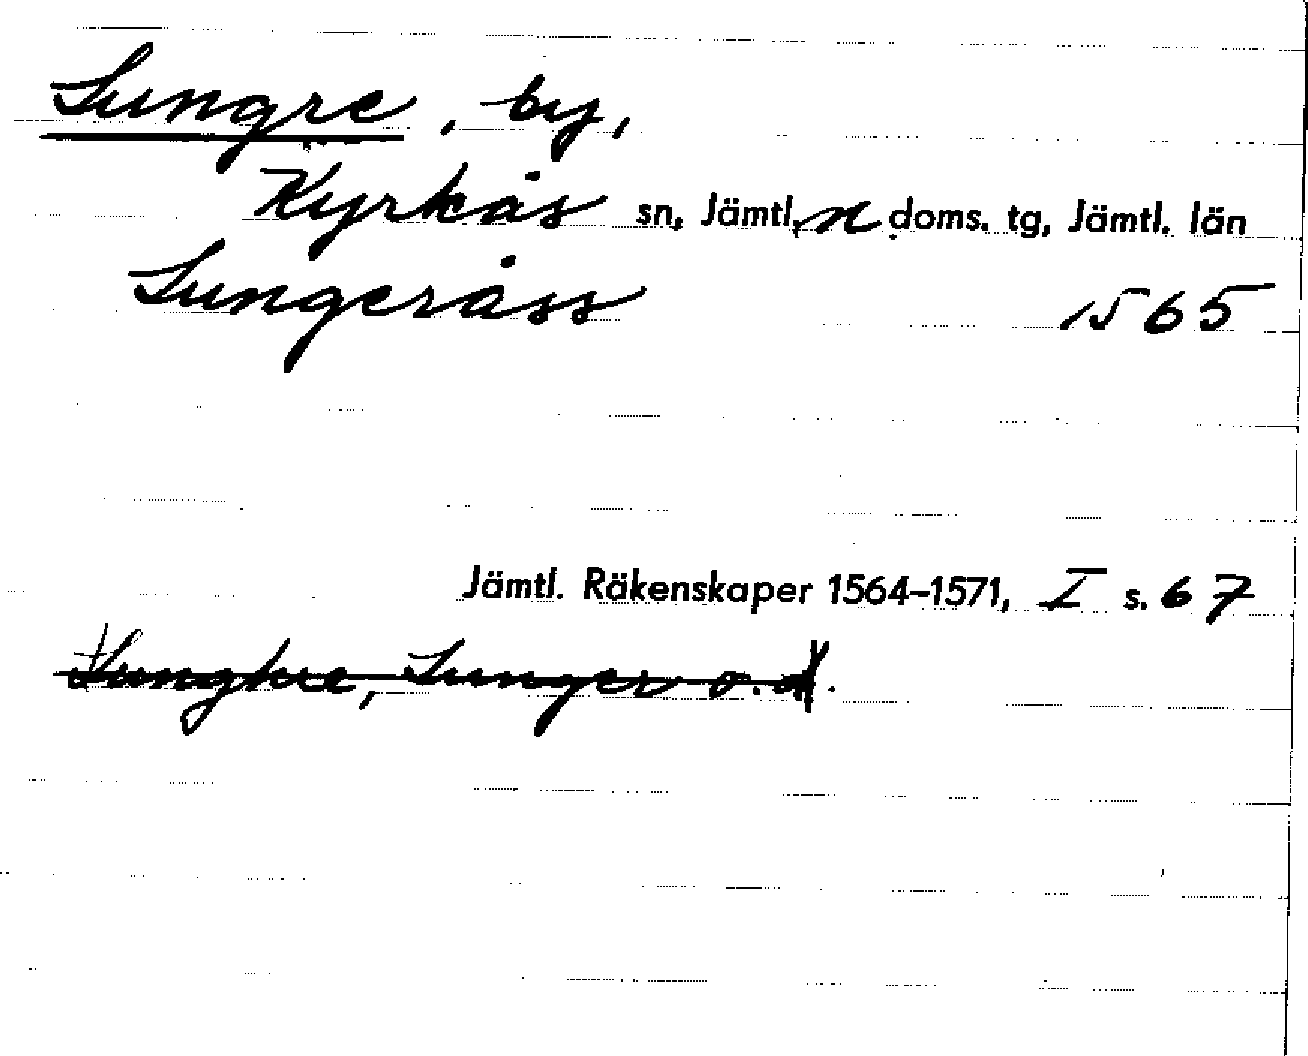 Lungre, by,
Kyrkås sn, Jämtl. n doms. tg, Jämtl. län
Lungeråss 1565
Jämtl. Räkenskaper 1564–1571, I s. 67
Lunghre, Lunger o. d.